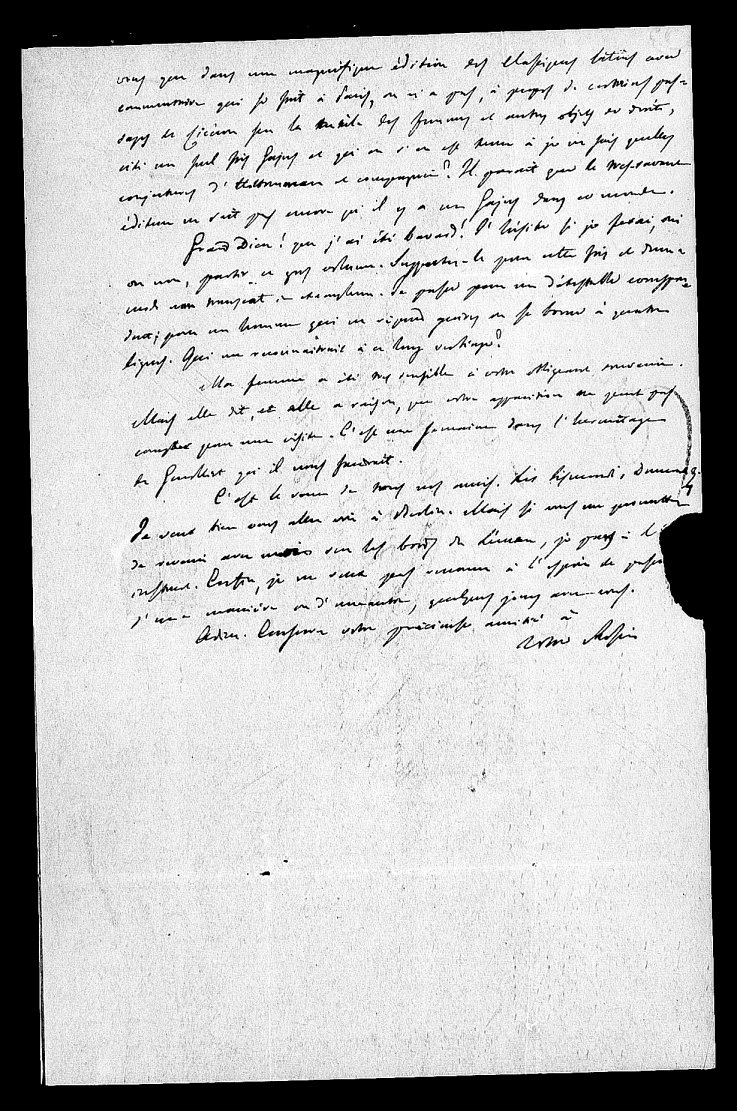 vous que dans une magnifique édition des Classiques latins avec
commentaire qui se fait à Paris, on n'a pas, à propos de certains pas-
sages de Cicéron sur la tutele des femmes et autres objets de droit,
cité un seul fois Gajus et qu'on s'en est tenu à je ne sais quelles
conjectures d'Hottomanus et compagnie? Il parait que le tres-savant
éditeur ne sait pas encore qu'il y a un Gajus dans ce monde.
Grand Dieu! que j'ai été bavard! J'hésite si je ferai, oui
ou non, partir ce gros volume. Supportez-le pour cette fois et
transeat in exemplum. Je passe pour un détestable correspon-
dant; pour un homme qui ne répond guères ou se borne à quatre
lignes. Qui me reconnaîtrait à ce long verbiage?
Ma femme a été tres sensible à votre obligeant souvenir.
Mais elle dit, et elle a raison, que votre apparition ne peut pas
compter pour une visite. C'est une semaine dans l'hermitage
de qu'il nous faudrait.
C'est le voeu de tous vos amis.
Je veux bien vous aller voir à Berlin. Mais si vous me permettez
de revenir avec moi sur les bords du Léman, je pars à l'i
Enfin, je ne veux pas renoncer à l'espoir de passer
d'une manière ou d'une autre, quelques jours avec vous.
Adieu. Conservez votre précieuse amitié à
votre Rossi